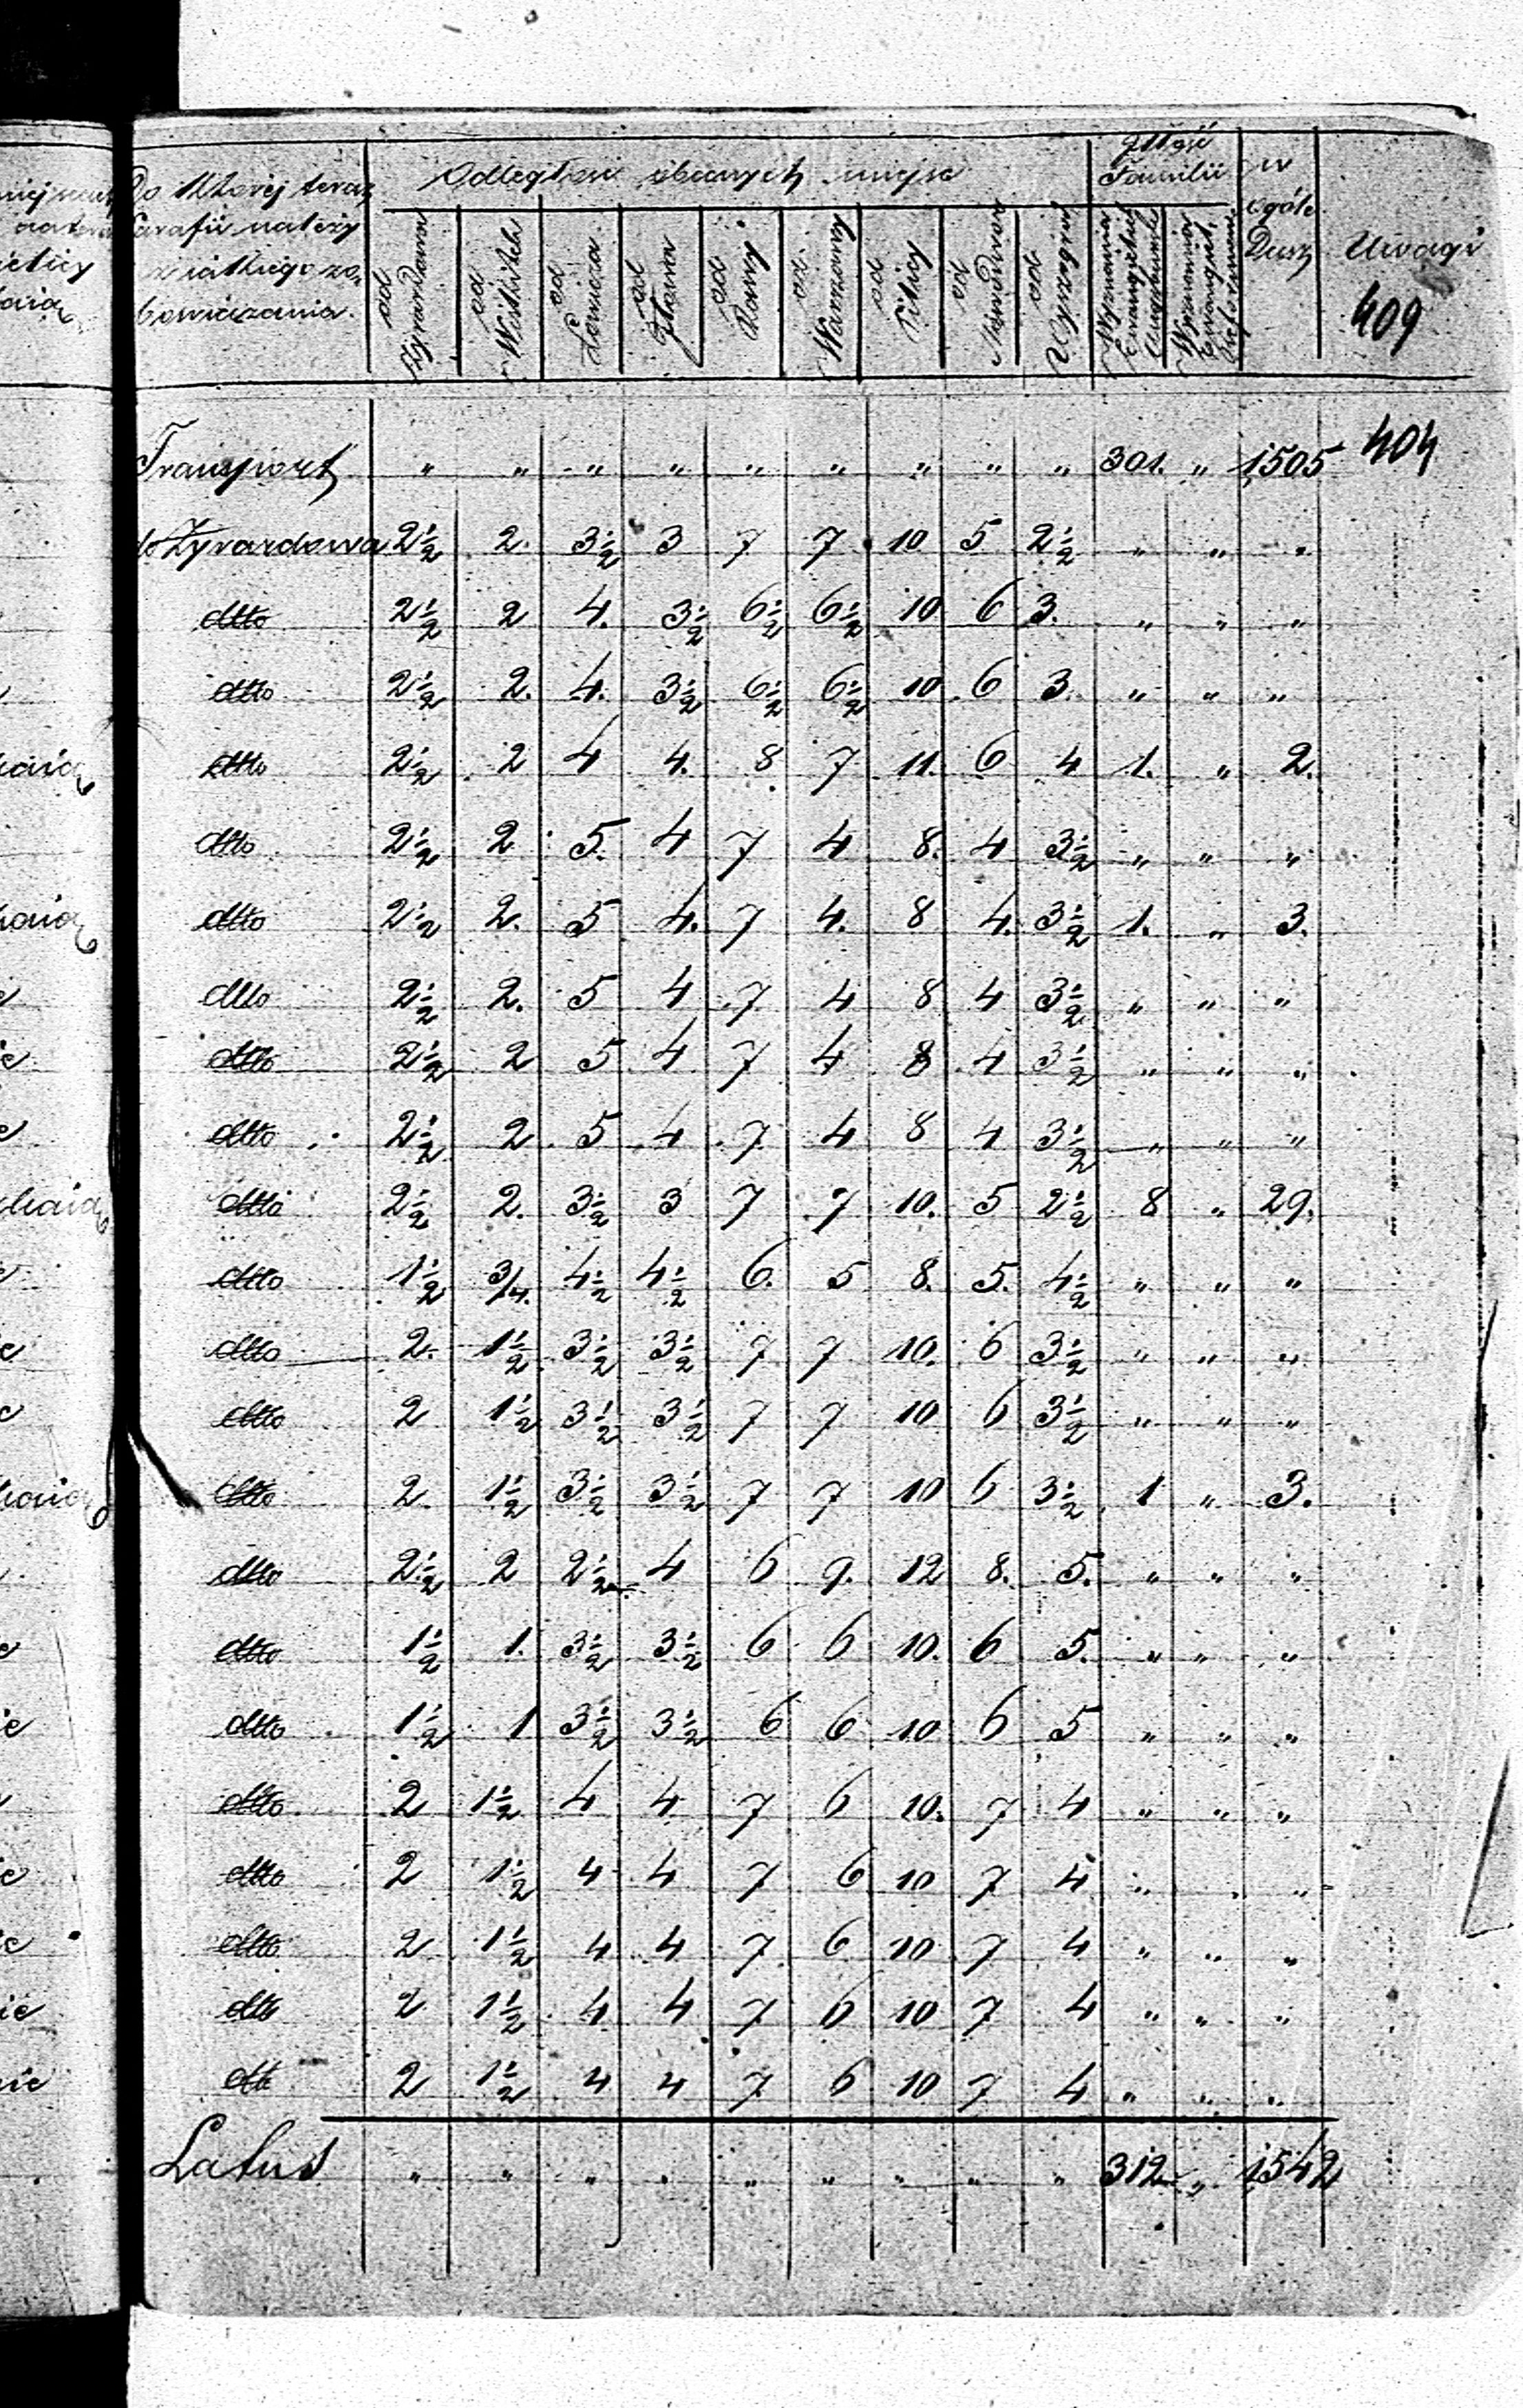 Do której teraz
Parafii należy
z jakiego zo-
bowiązania.
Odległość obecnych miejsc
od Żyrardowa
od Wiskitek
od Łowicza
od Iłowa
od Rawy
od Warszawy
od Pilicy
od
od Wyszogrodu
Ilość Familii
Wyznania Ewangielick Augsburs
Wyznania Ewangielick Reformow
w ogóle Dusz
Uwagi
409
Transport " " " " " " " " " 301. " 1,505 404
do Żyrardowa 2½ 2. 3½ 3 7 7 10 5 2½ " " "
dtto 2½ 2 4. 3½ 6½ 6½ 10 6 3. " " "
dtto 2½ 2. 4. 3½ 6½ 6½ 10 6 3. " " "
dtto 2½ 2 4 4. 8 7 11. 6 4 1. " 2.
dtto 2½ 2 5. 4 7 4 8. 4 3½ " " "
dtto 2½ 2. 5 4. 7 4. 8 4. 3½ 1. " 3.
dtto 2½ 2. 5 4 7 4 8 4 3½ " " "
dtto 2½ 2 5 4 7 4 8 4 3½ " " "
dtto 2½ 2 5 4 7 4 8 4 3½ " " "
dtto 2½ 2. 3½ 3 7 7 10. 5 2½ 8 " 29.
dtto 1½ 3/4. 4½ 4½ 6. 5 8. 5. 4½ " " "
dtto 2. 1½ 3½ 3½ 7 7 10. 6 3½ " " "
dtto 2 1½ 3½ 3½ 7 7 10 6 3½ " " "
dtto 2 1½ 3½ 3½ 7 7 10 6 3½ 1 " 3.
dtto 2½ 2 2½ 4 6 9. 12 8. 5. " " "
dtto 1½ 1. 3½ 3½ 6 6 10. 6 5. " " "
dtto 1½ 1 3½ 3½ 6 6 10 6 5 " " "
dtto 2 1½ 4 4 7 6 10. 7 4 " " "
dtto 2 1½ 4 4 7 6 10 7 4 " " "
dtto 2 1½ 4 4 7 6 10 7 4 " " "
dtto 2 1½ 4 4 7 6 10 7 4 " " "
dtto 2 1½ 4 4 7 6 10 7 4 " " "
Latus " " " " " " " " " 312 " 1,542